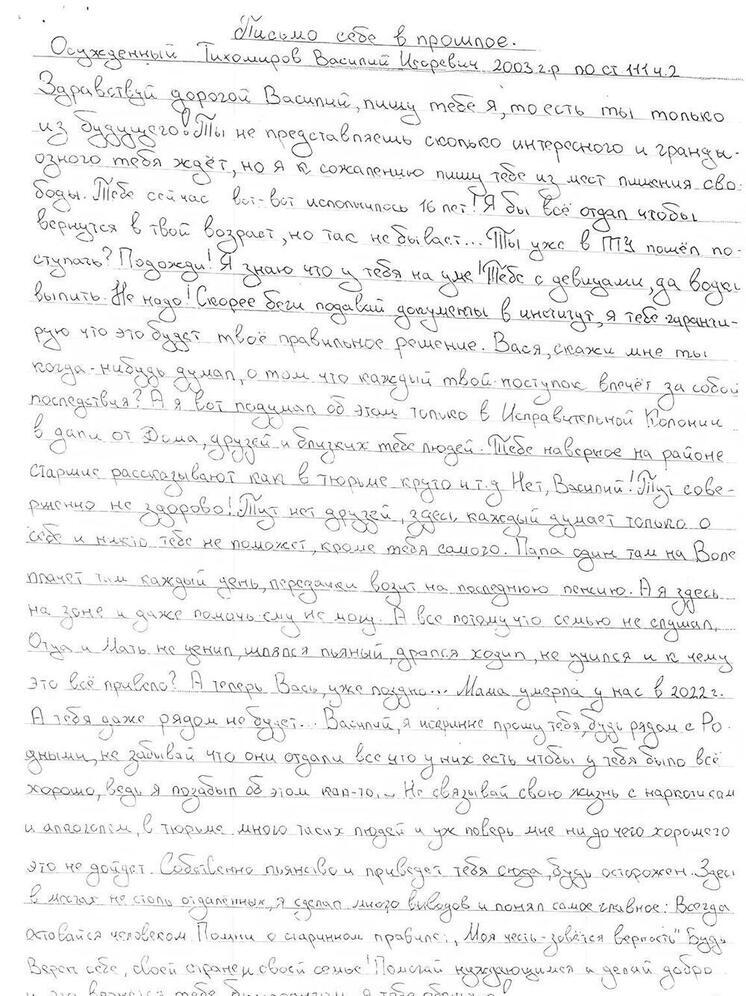 Письмо себе в прошлое.
Осужденный Тихомиров Василий Игоревич 2003 г.р по ст 111 ч.2
Здравствуй дорогой Василий, пишу тебе я, то есть ты только
из будущего! Ты не представляешь сколько интересного и гранди-
озного тебя ждёт, но я к сожалению пишу тебе из мест лишения сво-
боды. Тебе сейчас вот-вот исполнилось 16 лет! Я бы всё отдал чтобы
вернутся в твой возраст, но так не бывает... Ты уже в ТУ пошёл по-
ступать? Подожди! Я знаю что у тебя на уме! Тебе с девицами, да водки
выпить. Не надо! Скорее беги подавай документы в институт, я тебе гаранти-
рую что это будет твоё правильное решение. Вася, скажи мне ты
когда-нибудь думал, о том что каждый твой поступок влечёт за собой
последствия? А я вот подумал об этом только в Исправительной Колонии
в дали от Дома, друзей и близких тебе людей. Тебе наверное на районе
старшие рассказывают как в тюрьме круто и т.д Нет, Василий! Тут сове-
ршенно не здорово! Тут нет друзей, здесь каждый думает только о
себе и никто тебе не поможет, кроме тебя самого. Папа один там на Воле
плачет там каждый день, передачки возит на последнюю пенсию. А я здесь
на зоне и даже помочь ему не могу. А все потому что семью не слушал,
Отца и Мать не ценил, шлялся пьяный, дрался ходил, не учился и к чему
это всё привело? А теперь Вась, уже поздно... Мама умерла у нас в 2022 г.
А тебя даже рядом не будет... Василий, я искренне прошу тебя, будь рядом с Ро-
дными, не забывай что они отдали все что у них есть чтобы у тебя было всё
хорошо, ведь я позабыл об этом как-то... Не связывай свою жизнь с наркотиком
и алкоголем, в тюрьме много таких людей и уж поверь мне ни до чего хорошего
это не дойдет. Собственно пьянство и приведет тебя сюда, будь осторожен. Здесь
в местах не столь отдалённых, я сделал много выводов и понял самое главное: Всегда
оставайся человеком Помни о старинном правиле: „Моя честь - зовётся верность" Будь
Верен себе, своей стране и своей семье! Помогай нуждающимся и делай добро
и это вернётся тебе